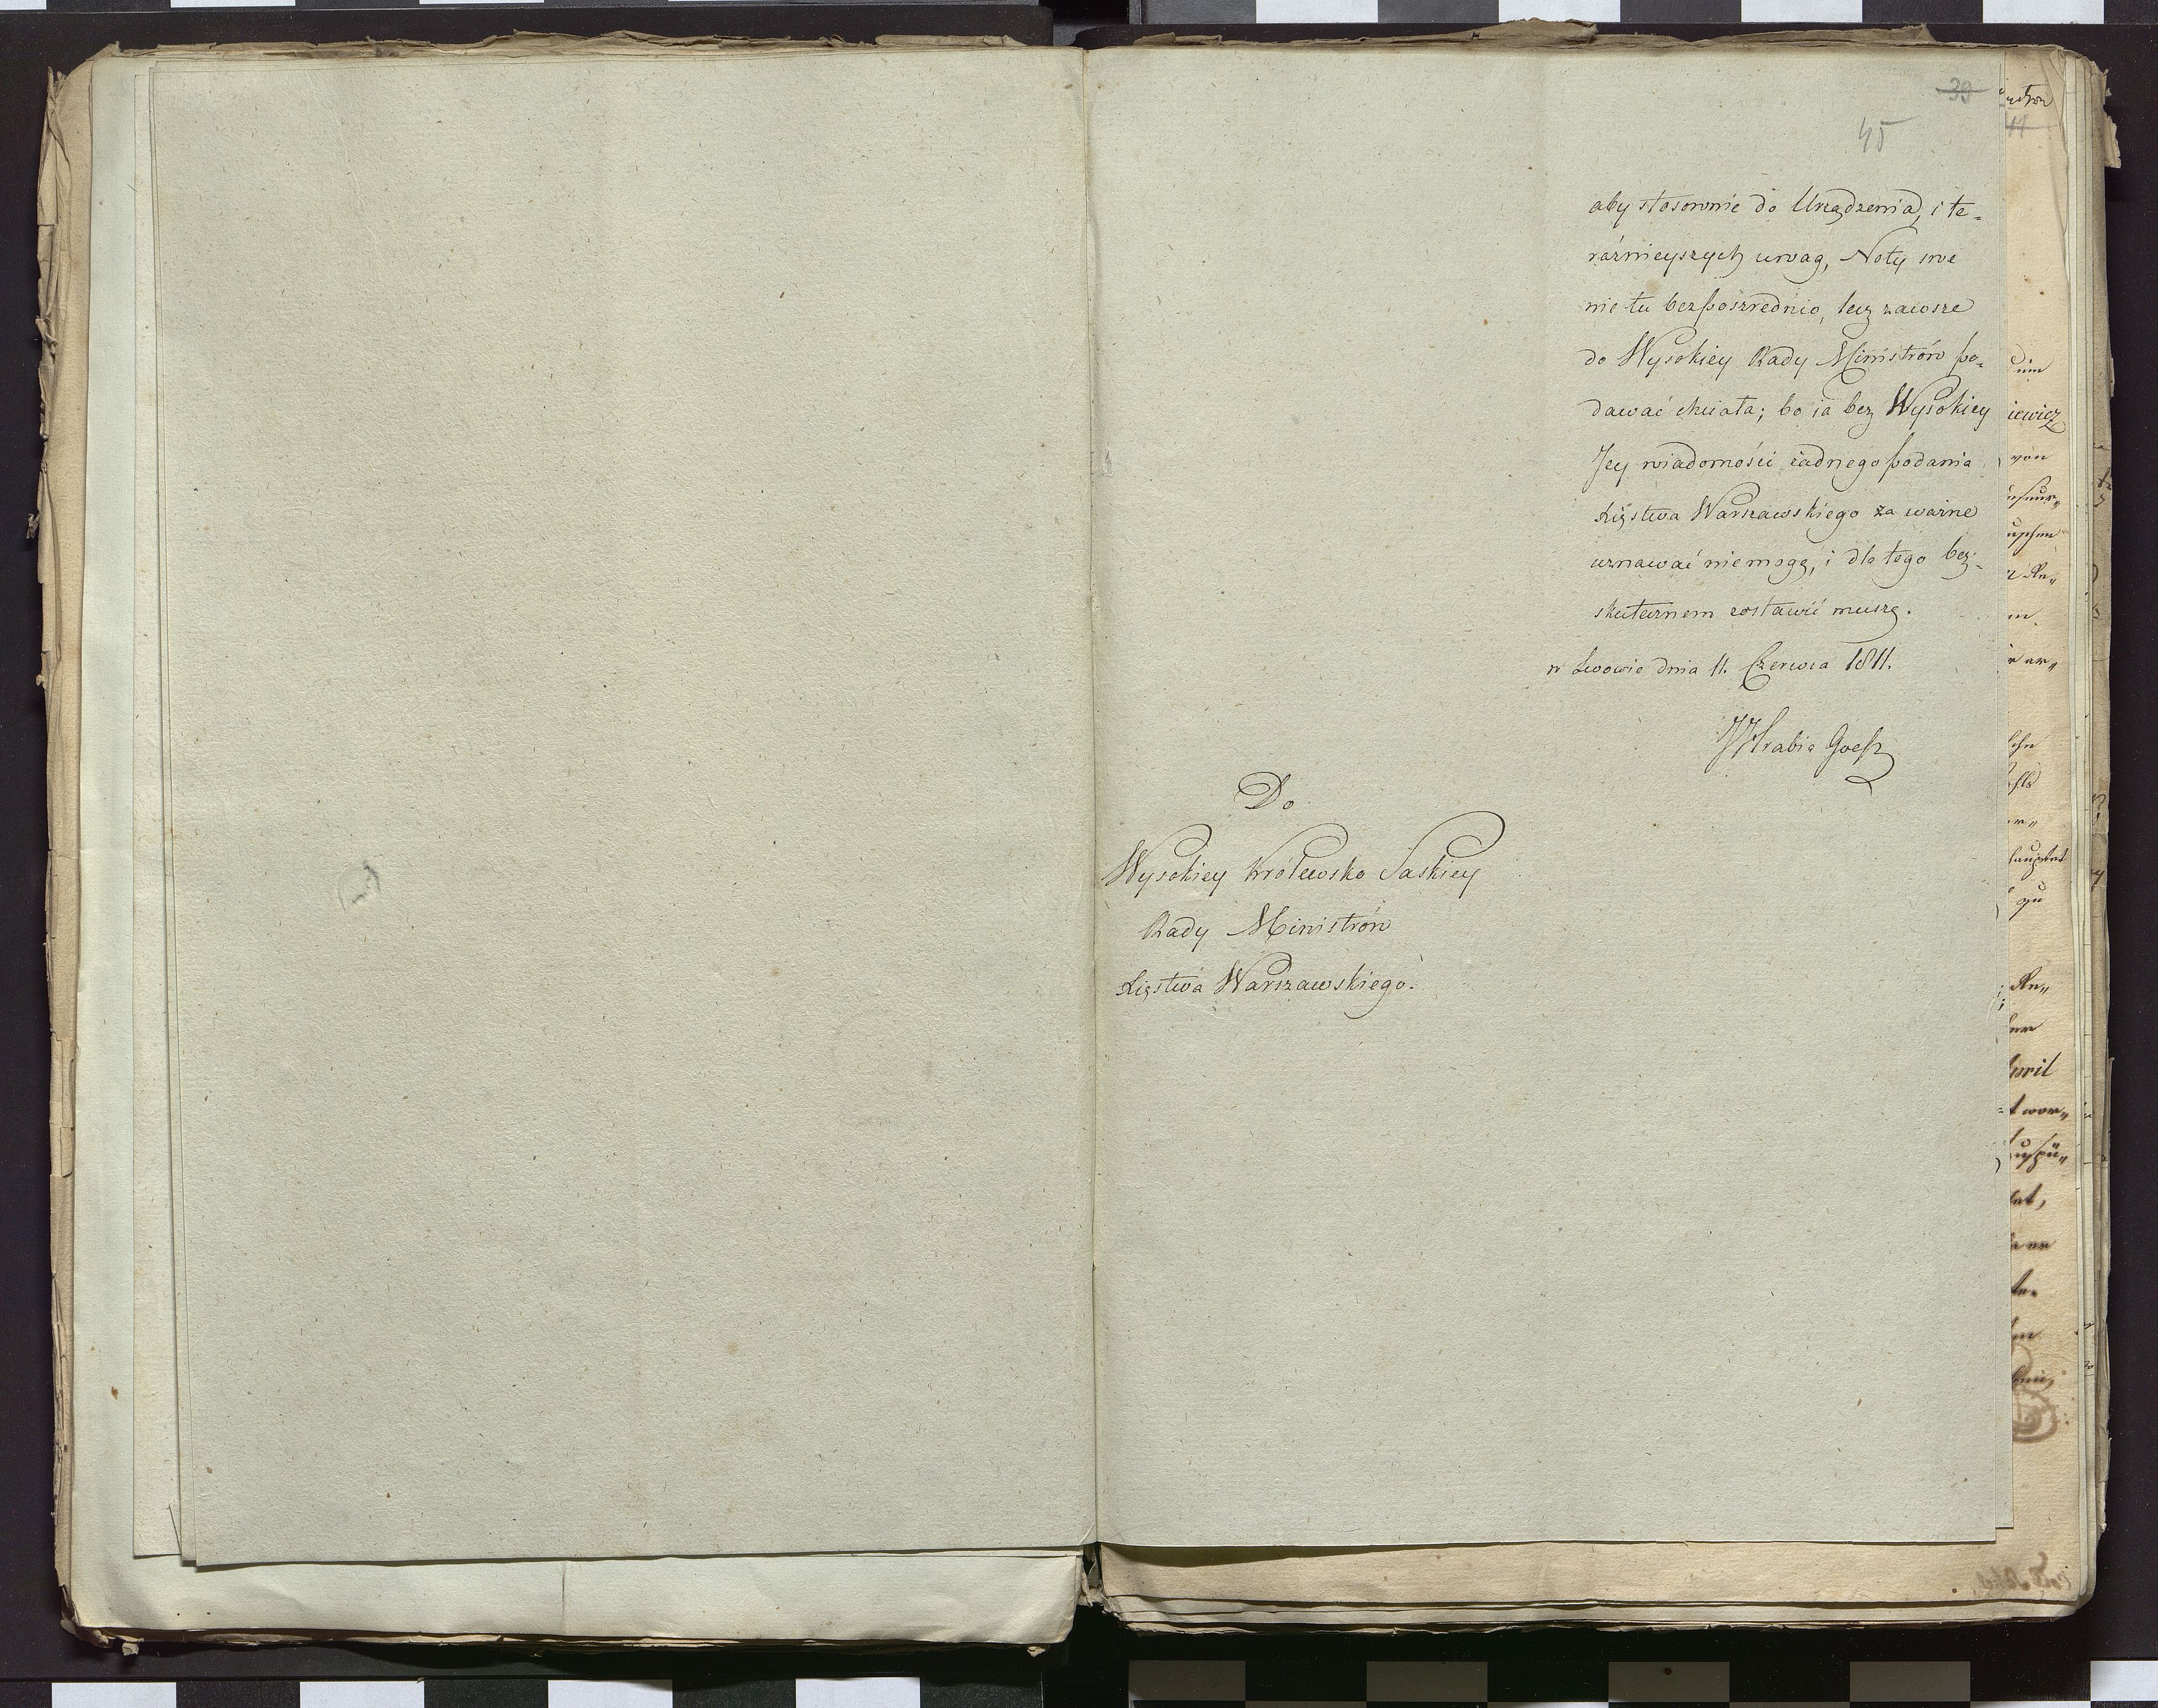 39
45
aby stosownie do Urządzenia, i te-
raźnieyszych uwag, Noty swe
nie tu bezposzrednio, lecz zawsze
do Wysokiey Rady Ministrów po-
dawać chciała; bo ia bez Wysokiey
Jey wiadomości żadnego podania
Xięstwa Warszawskiego za ważne
uznawać niemogę, i dla tego bez-
skutecznem zostawić muszę.
w Lwowie dnia 11. Czerwca 1811.
Hrabia Goeß
Do
Wysokiey Królewsko Saskiey
Rady Ministrów
Xięstwa Warszawskiego.
iewicz
von
April